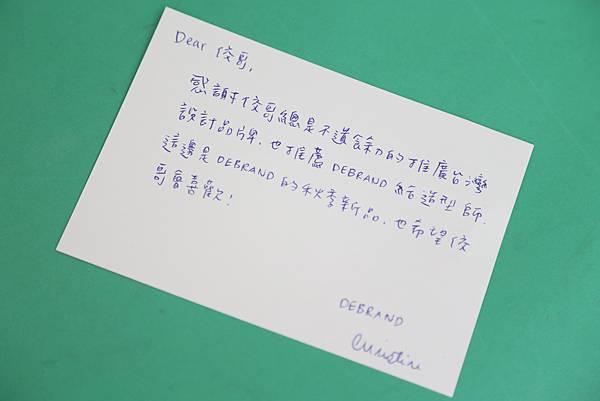 Dear 佼哥,
感謝佼哥總是不遺餘力的推廣台灣
設計品牌, 也推薦 DEBRAND 給造型師.
這邊是 DEBRAND 的秋季新品, 也希望佼
哥會喜歡!
DEBRAND
Christine